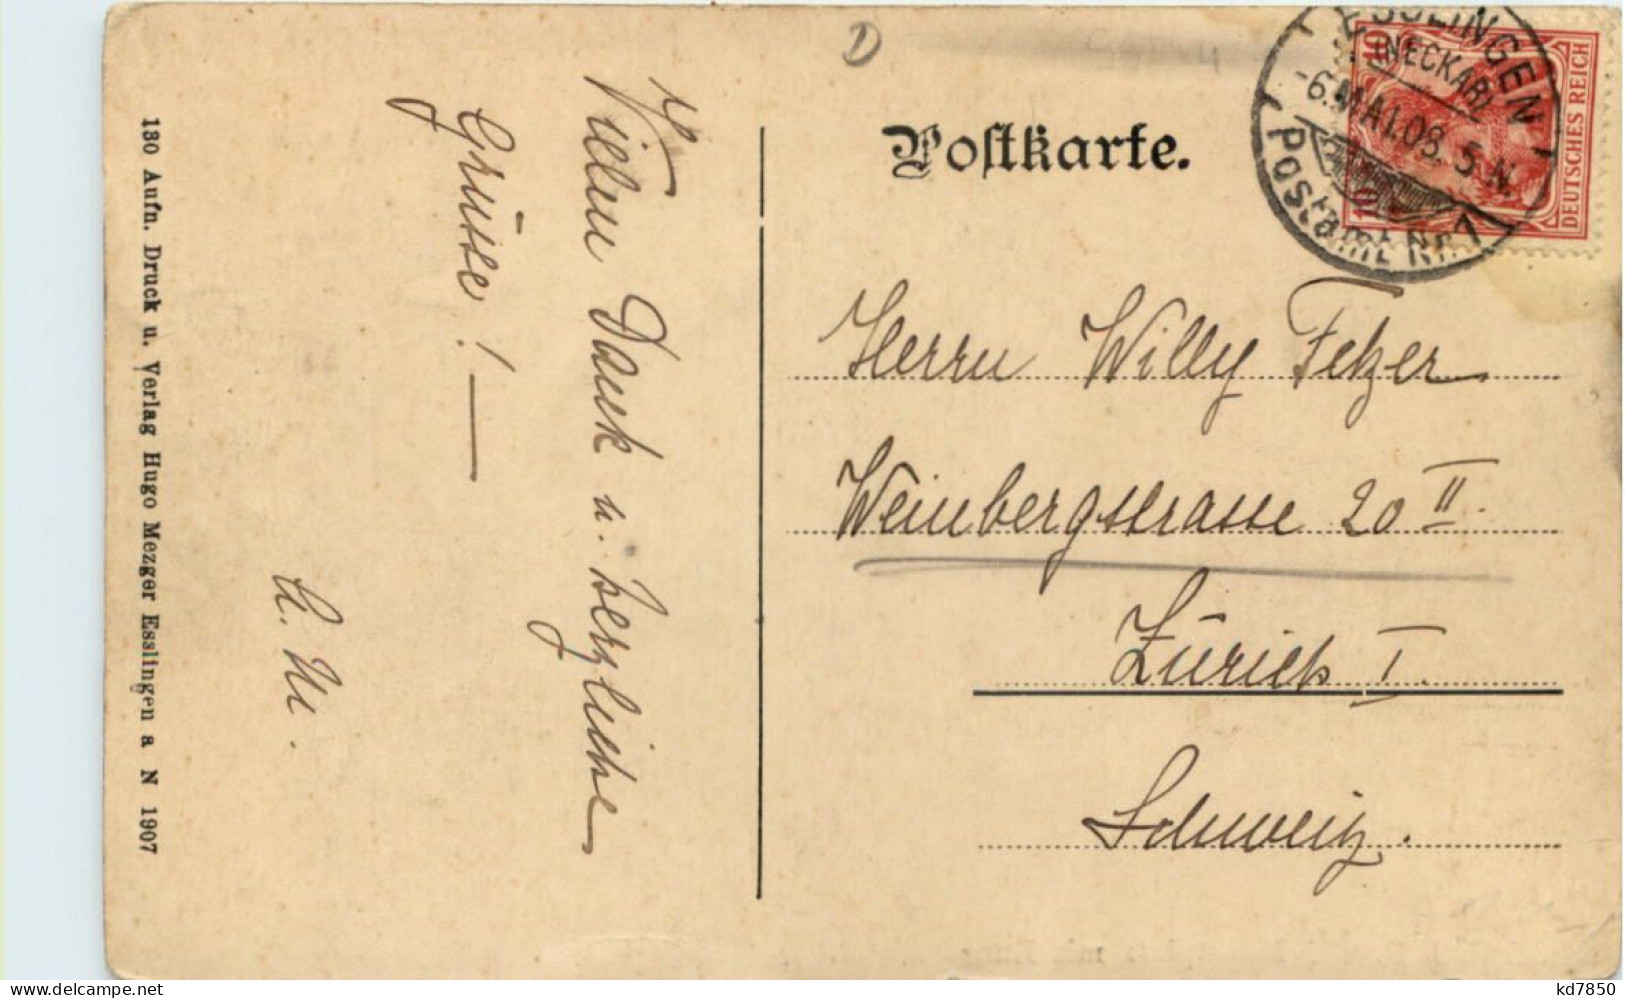 D
Postkarte.
ESSLINGEN
(NECKAR)
-6.MAI.08. 5-N.
Postamt Nr. 1
10
10
DEUTSCHES REICH
Vielen Dank u. herzliche
Grüsse! —
Herrn Willy Fetzer
Weinbergstrasse 20 II.
Zürich I.
Schweiz.
130 Aufn. Druck u. Verlag Hugo Mezger Esslingen a N 1907
kd7850